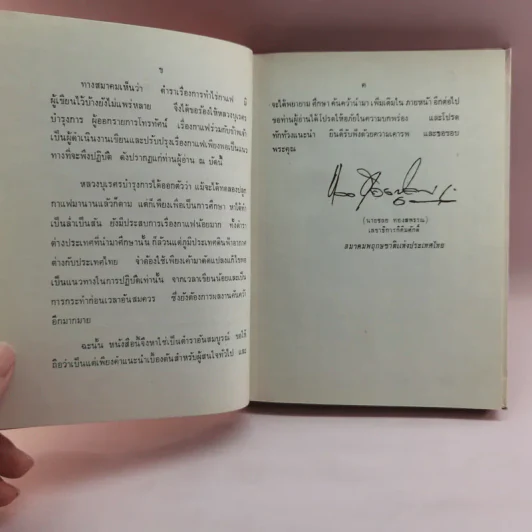 ข
ทางสมาคมเห็นว่า ตำราเรื่องการทำไร่กาแฟ มี
ผู้เขียนไว้บ้างยังไม่แพร่หลาย จึงได้ขอร้องให้หลวงบุเรศร
บำรุงการ ผู้ออกรายการโทรทัศน์ เรื่องกาแฟร่วมกับข้าพเจ้า
เป็นผู้ดำเนินงานเขียนและปรับปรุงเรื่องกาแฟเพียงพอเป็นแนว
ทางที่จะพึงปฏิบัติ ดังปรากฏแก่ท่านผู้อ่าน ณ บัดนี้
หลวงบุเรศรบำรุงการได้ออกตัวว่า แม้จะได้ทดลองปลูก
กาแฟมานานแล้วก็ตาม แต่ก็เพียงเพื่อเป็นการศึกษา หาได้ทำ
เป็นล่ำเป็นสัน ยังมีประสบการเรื่องกาแฟน้อยมาก ทั้งตำรา
ต่างประเทศที่นำมาศึกษานั้น ก็ล้วนแต่ภูมิประเทศดินฟ้าอากาศ
ต่างกับประเทศไทย จำต้องใช้เพียงเค้ามาดัดแปลงแก้ไขพอ
เป็นแนวทางในการปฏิบัติเท่านั้น จากเวลาเขียนน้อยและเป็น
การกระทำก่อนเวลาอันสมควร ซึ่งยังต้องการผลงานค้นคว้า
อีกมากมาย
ฉะนั้น หนังสือนี้จึงหาใช่เป็นตำราอันสมบูรณ์ ขอให้
ถือว่าเป็นแต่เพียงคำแนะนำเบื้องต้นสำหรับผู้สนใจทั่วไป และ
ค
จะได้พยายาม ศึกษา ค้นคว้านำมา เพิ่มเติมใน ภายหน้า อีกต่อไป
ขอท่านผู้อ่านได้โปรดให้อภัยในความบกพร่อง และโปรด
ทักท้วงแนะนำ ยินดีรับฟังด้วยความเคารพ และขอขอบ
พระคุณ
(นายชอุ่ม ทองสพราณ)
เลขาธิการกิติมศักดิ์
สมาคมพฤกษชาติแห่งประเทศไทย